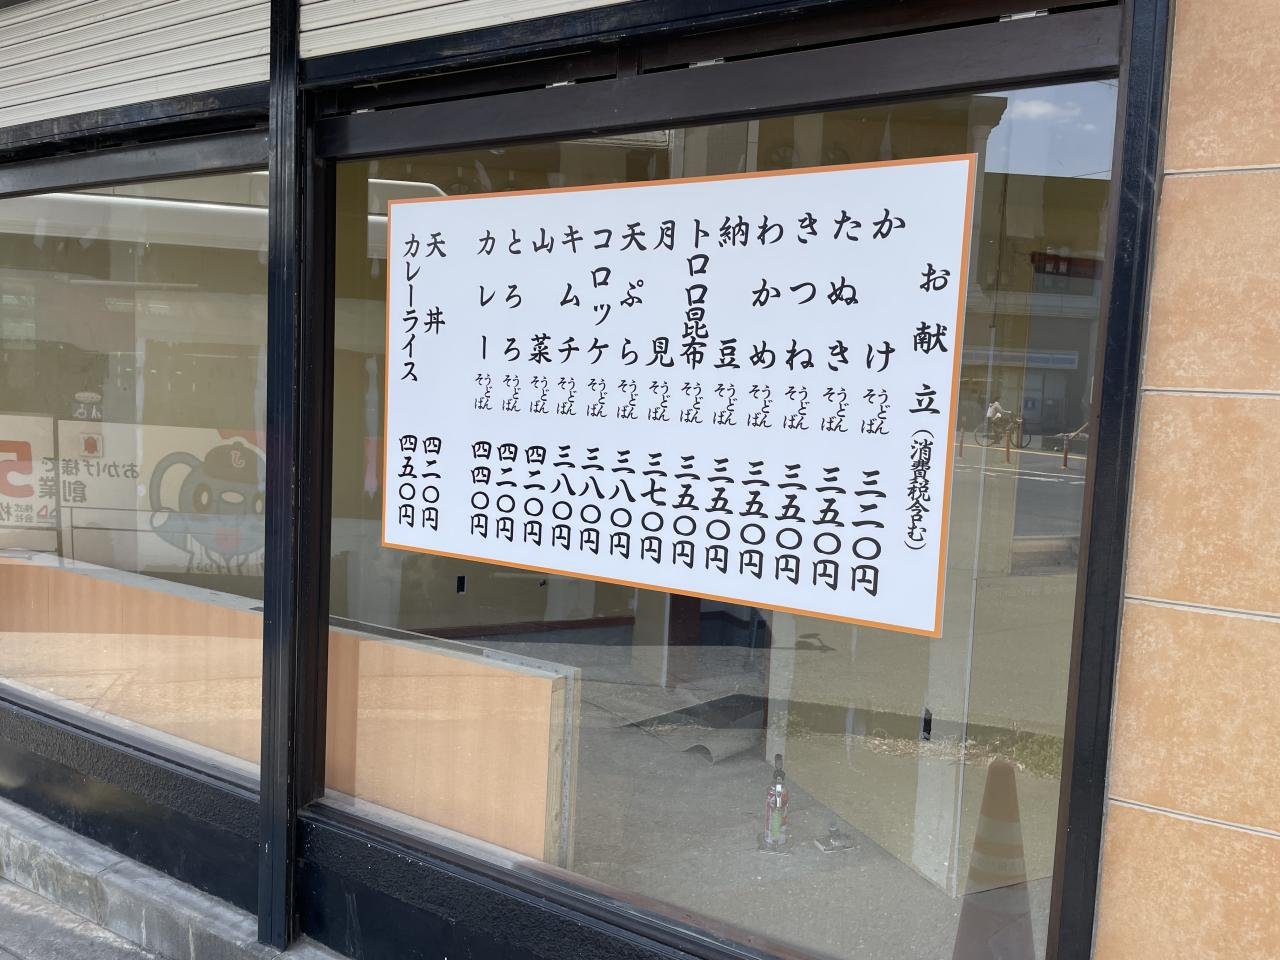 お献立(消費税含む)
かけ うどん そば 三二〇円
たぬき うどん そば 三五〇円
きつね うどん そば 三五〇円
わかめ うどん そば 三五〇円
納豆 うどん そば 三五〇円
トロロ昆布 うどん そば 三五〇円
月見 うどん そば 三七〇円
天ぷら うどん そば 三八〇円
コロッケ うどん そば 三八〇円
キムチ うどん そば 三八〇円
山菜 うどん そば 四二〇円
とろろ うどん そば 四二〇円
カレー うどん そば 四四〇円
天丼 四二〇円
カレーライス 四五〇円
おかげ様で
創業
5
株式会社